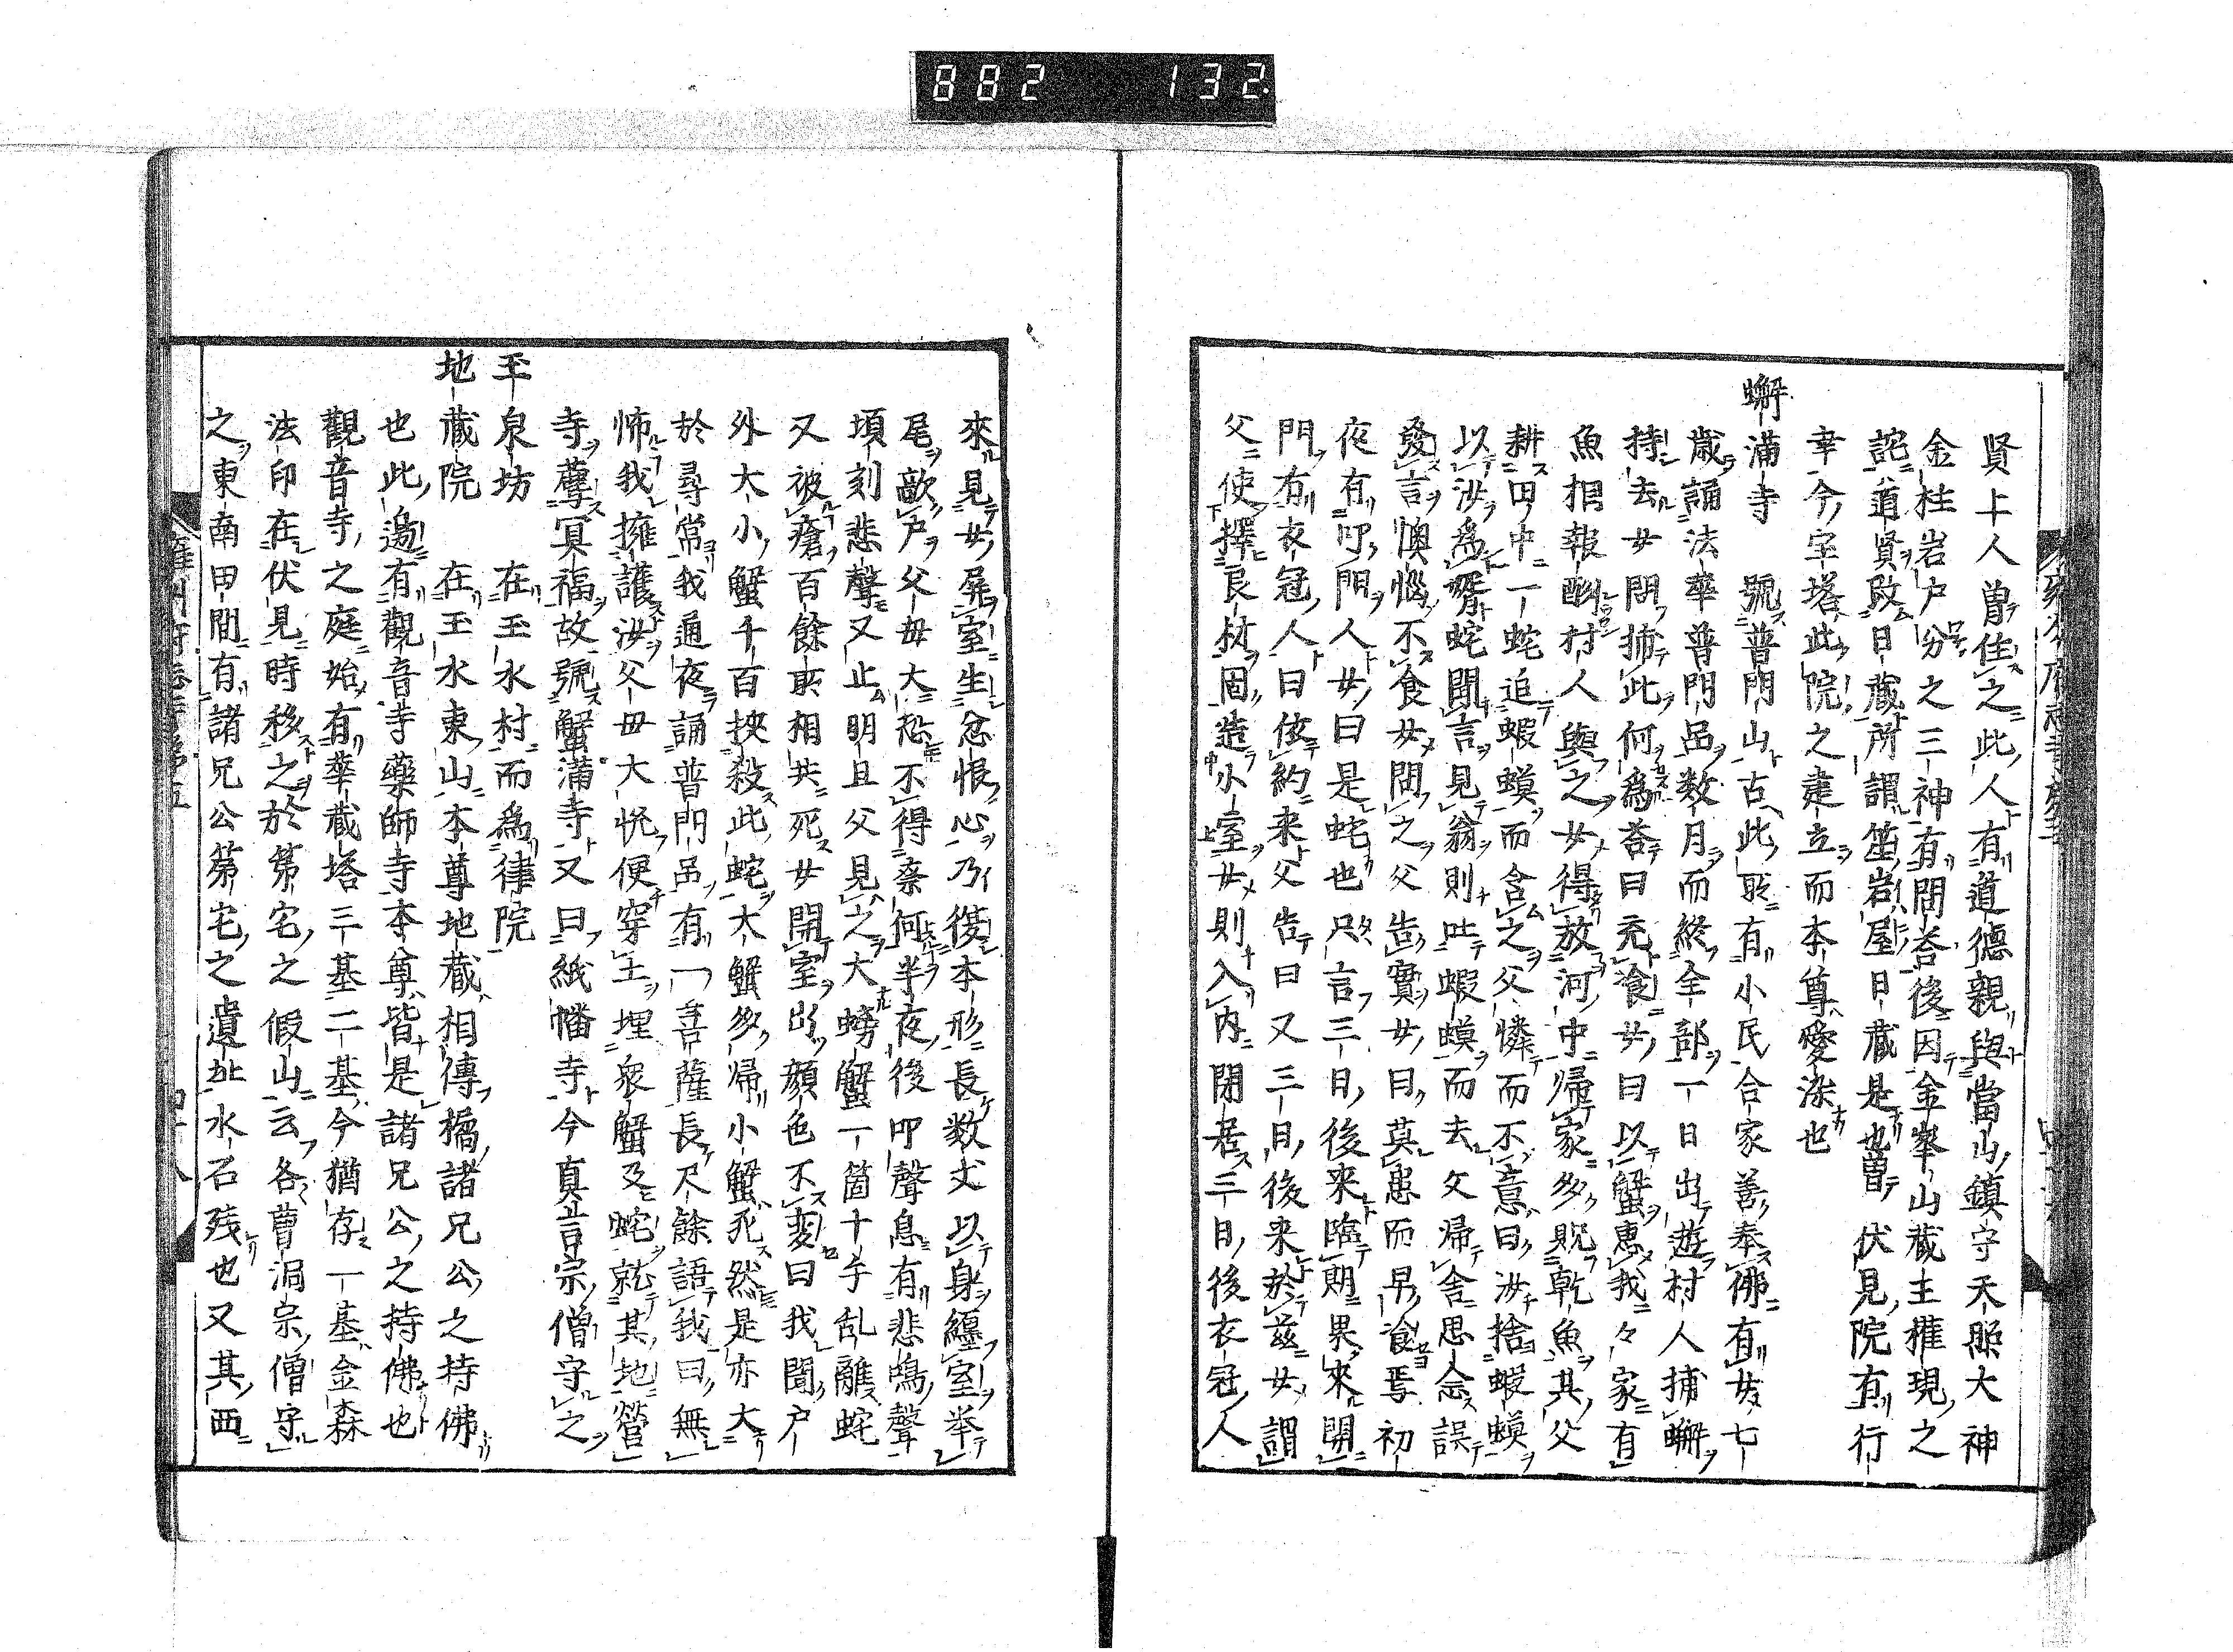 882 132
賢上人曽住之此人有道德親與當山鎮守天照大神
金柱岩戸分之三神有問荅後因金峯山藏主權現之
詫道賢改日藏所謂笙岩屋日藏是也曽伏見院有行
幸今宝塔此院之建立而本尊愛染也
蠏滿寺 號普門山古此耴有小民合家善奉佛有女七
歳誦法華普門品数月而終全部一日出遊村人捕蠏
持去女問捕此何為荅曰充飡女曰以蟹惠我々家有
魚相報酬村人與之女得放河中歸家多貺乾魚其父
耕田中一蛇追蝦蟆而含之父憐而不意曰汝捨蝦蟆
以汝為壻蛇聞言見翁則吐蝦蟆而去父歸舎思念誤
發言懊惱不食女問之父告實女曰莫患而早飡焉初
夜有叩門人女曰是蛇也只言三日後来臨期果來開
門有衣冠人曰依約来父告曰又三日後来於茲女謂
父使擇良材固造小室女則入内閉居三日後衣冠人
來見女屏室生忿恨心乃復本形長数丈以身纏室挙
尾敲戸父母大恐不得奈何半夜後叩聲息有悲鳴聲
頃刻悲聲又止明且父見之大螃蟹一箇十手乱離蛇
又被瘡百餘耴相共死女開室出顔色不変曰我聞户
外大小蟹千百挾殺此蛇大蟹多歸小蟹死然是亦大
於尋常我通夜誦普門品有一菩薩長尺餘語我曰無
怖我擁護汝父母大悦便穿土埋衆蟹及蛇就其地營
寺薦冥福故號蟹滿寺又曰紙幡寺今真言宗僧守之
玉泉坊 在玉水村而為律院
地藏院 在玉水東山本尊地藏相傳橘諸兄公之持佛
也此邉有觀音寺藥師寺本尊皆是諸兄公之持佛也
觀音寺之庭始有華藏塔三基二基今猶存一基金森
法印在伏見時移之於第宅之假山云各曹洞宗僧守
之東南田間有諸兄公第宅之遺址水石残也又其西